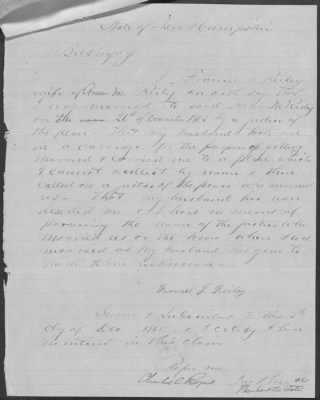 State of New Hampshire
Belknap
I Frances J. Reiley
wife of M. Reiley on oath say that
I was married to said M. Reiley
on the 21st of December by a justice of
the peace. That my husband took me
in a carriage for the purpose of getting
married & carried me to a place which
I cannot recollect by name & there
called on a justice of the peace who married
us. That my husband has now
deserted me & I have no means of
procuring the name of the justice who
married us or the town where I was
married as my husband has gone to
parts to me unknown.
Frances J. Reiley
Sworn & Subscribed to this 5th
day of Dec & I certify I have
no interest in this claim
Before me
Charles C. Rogers